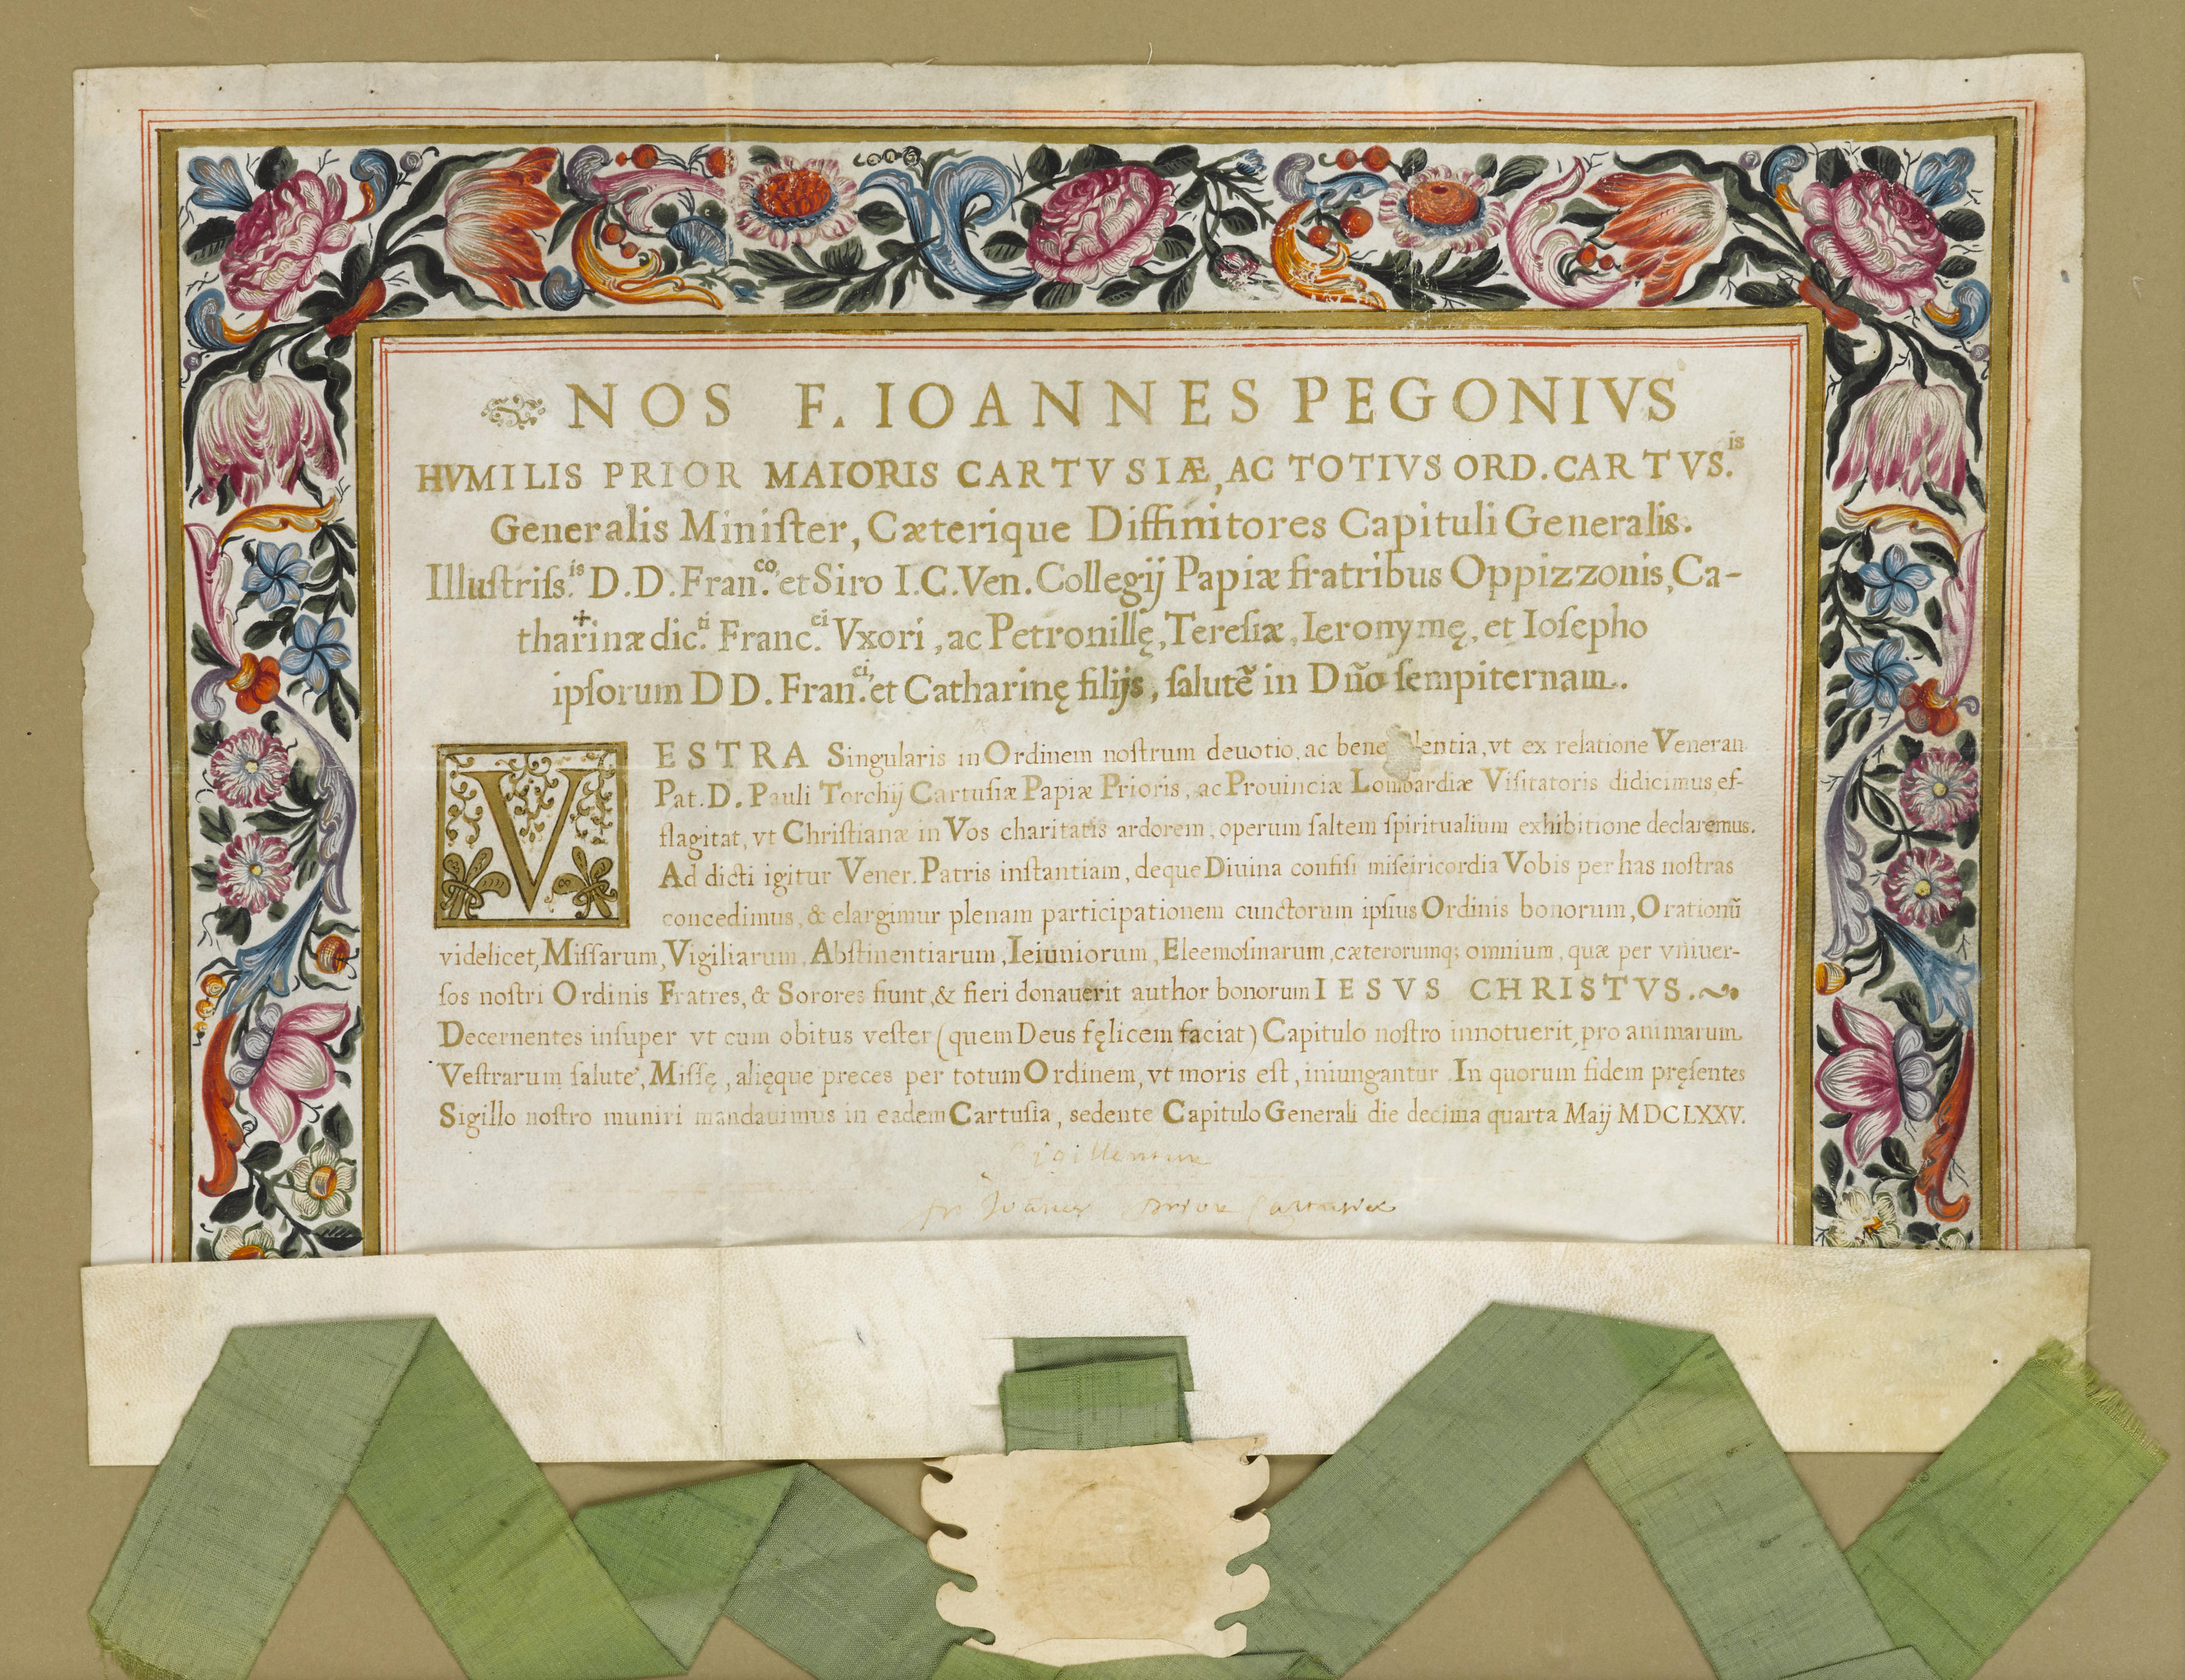 NOS F. IOANNES PEGONIVS
HVMILIS PRIOR MAIORIS CARTVSIÆ, AC TOTIVS ORD. CARTVS.is
Generalis Miniſter, Cæterique Diffinitores Capituli Generalis.
Illuſtriſs.is D.D. Fran.co et Siro I.C. Ven. Collegij Papiæ fratribus Oppizzonis, Ca-
tharinæ dic.ti Franc.ci Vxori, ac Petronillę, Tereſiæ, Ieronymę, et Ioſepho
ipſorum DD. Fran.ci et Catharinę filijs, ſalutē in Dño ſempiternam.
VESTRA Singularis in Ordinem noſtrum deuotio, ac bene lentia, vt ex relatione Veneran.
Pat. D. Pauli Torchij Cartuſiæ Papiæ Prioris, ac Prouinciæ Lombardiæ Viſitatoris didicimus, ef-
flagitat, vt Chriſtianæ in Vos charitatis ardorem, operum ſaltem ſpiritualium exhibitione declaremus.
Ad dicti igitur Vener. Patris inſtantiam, deque Diuina confiſi miſeiricordia Vobis per has noſtras
concedimus, & elargimur plenam participationem cunctorum ipſius Ordinis bonorum, Orationũ
videlicet, Miſſarum, Vigiliarum, Abſtinentiarum, Ieiuniorum, Eleemoſinarum, cæterorumq; omnium, quæ per vniuer-
ſos noſtri Ordinis Fratres, & Sorores fiunt, & fieri donauerit author bonorum IESVS CHRISTVS.
Decernentes inſuper vt cum obitus veſter (quem Deus fęlicem faciat) Capitulo noſtro innotuerit, pro animarum
Veſtrarum ſalute, Miſſę, alięque preces per totum Ordinem, vt moris eſt, iniungantur. In quorum fidem pręſentes
Sigillo noſtro muniri mandauimus in eadem Cartuſia, ſedente Capitulo Generali die decima quarta Maij MDCLXXV.
Sigillentur
fr Joānes Prior Cartusiæ